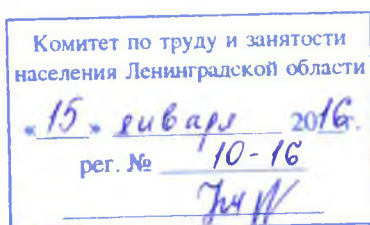 Комитет по труду и занятости
населения Ленинградской области
«15» января 2016г.
рег. № 10-16